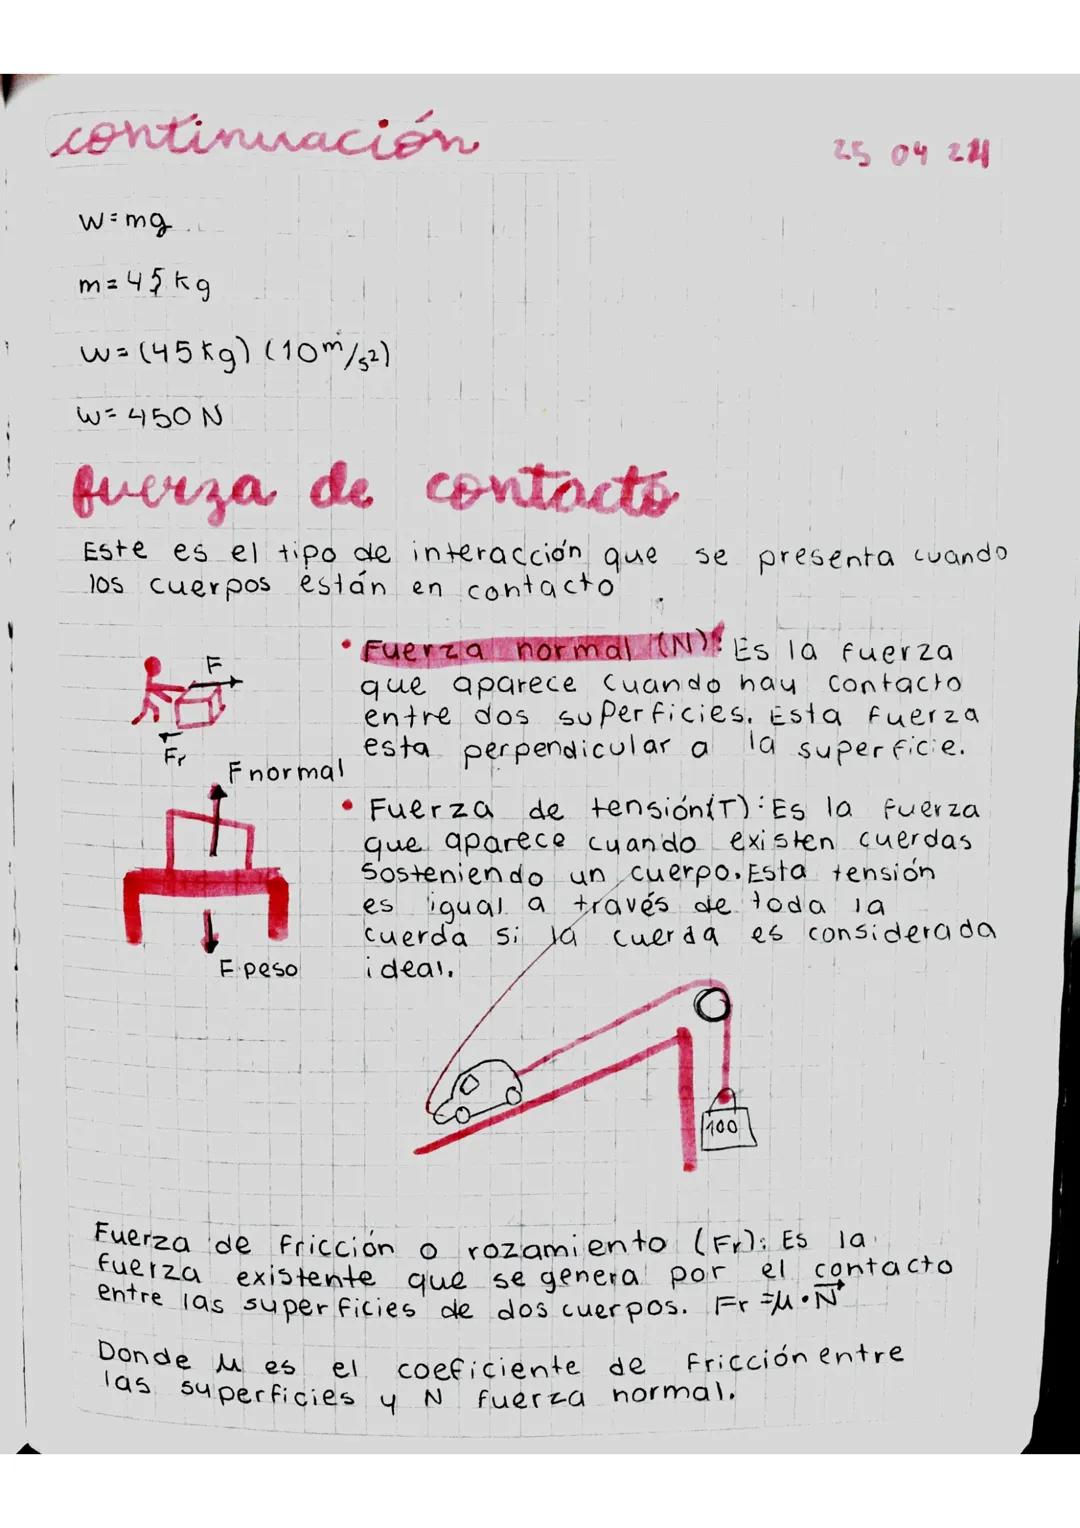 continuación
25 04 24
w=mg
m=45kg
w=(45kg) (10m/s²)
w=450N
fuerza de contacto
Este es el tipo de interacción que se presenta cuando
los cuerpos están en contacto
• Fuerza normal (N): Es la fuerza
que aparece cuando hay contacto
entre dos superficies. Esta fuerza
esta perpendicular a la superficie.
F
Fr
F normal
F peso
• Fuerza de tensión(T): Es la fuerza
que aparece cuando existen cuerdas
sosteniendo un cuerpo. Esta tensión
es igual a través de toda la
cuerda si la cuerda es considerada
ideal.
100
Fuerza de fricción o rozamiento (Fr): Es la
fuerza existente que se genera por el contacto
entre las superficies de dos cuerpos. Fr =μ•N⃗
Donde μ es el coeficiente de fricción entre
las superficies y N fuerza normal.